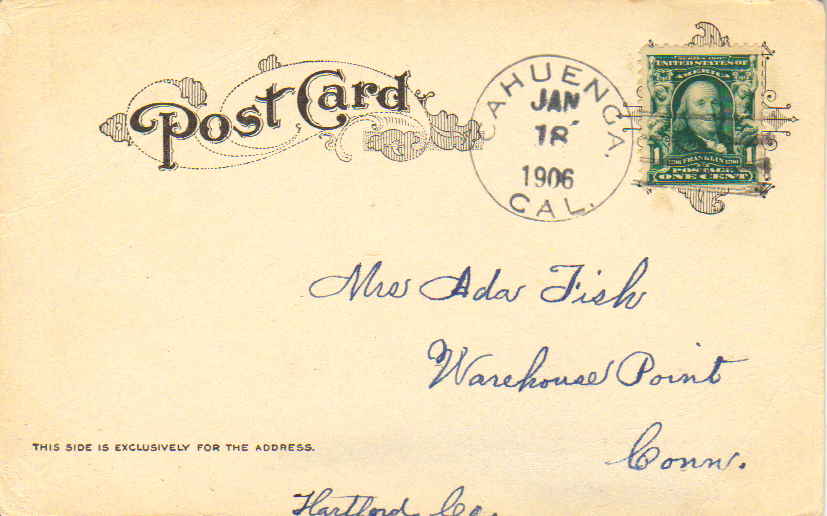 Post Card
CAHUENGA.
JAN
18
1906
CAL.
SERIES 1902
UNITED STATES OF
AMERICA
1706 FRANKLIN 1790
1 POSTAGE 1
ONE CENT
Mrs Ada Fish
Warehouse Point
Conn.
THIS SIDE IS EXCLUSIVELY FOR THE ADDRESS.
Hartford Co.